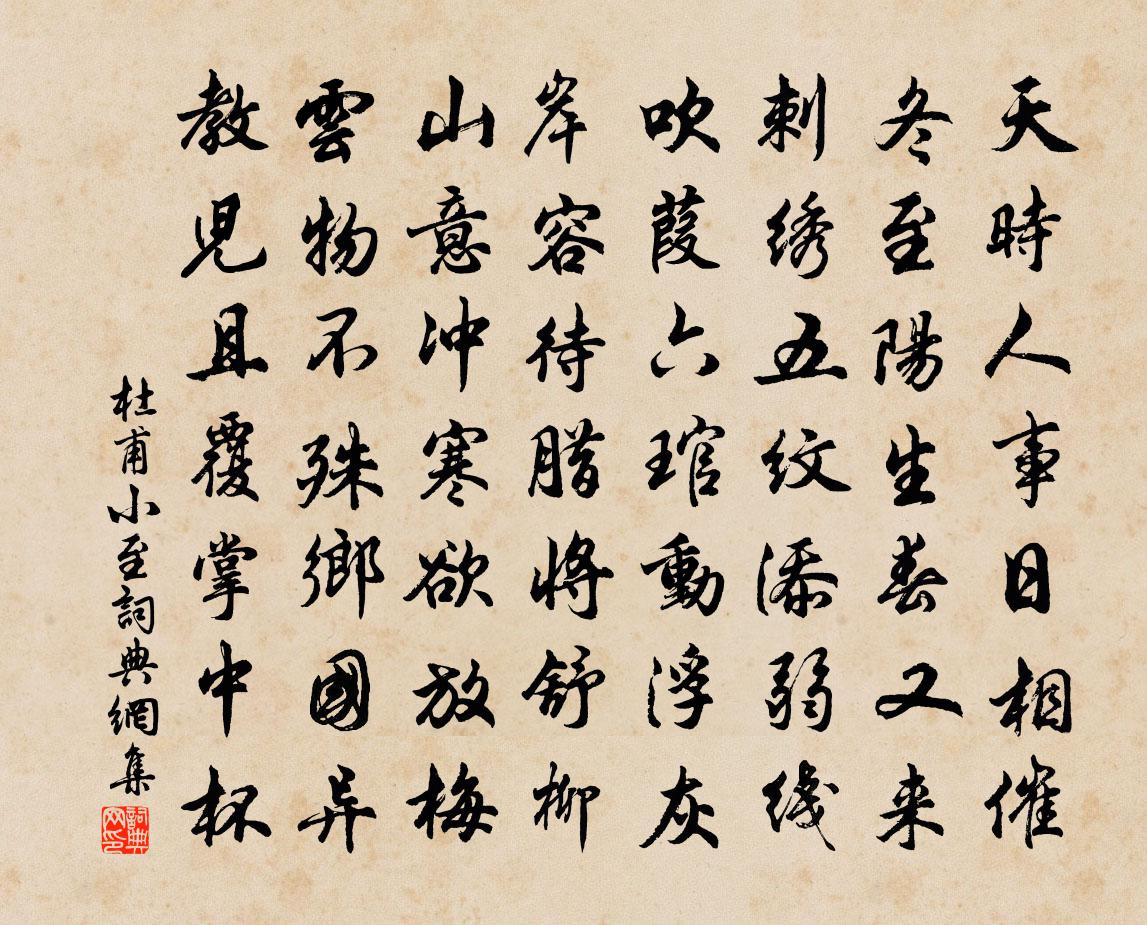 天時人事日相催
冬至陽生春又来
刺绣五纹添弱线
吹葭六琯動浮灰
岸容待腊將舒柳
山意冲寒欲放梅
雲物不殊鄉國异
教児且覆掌中杯
杜甫小至詞典網集
詞典网印